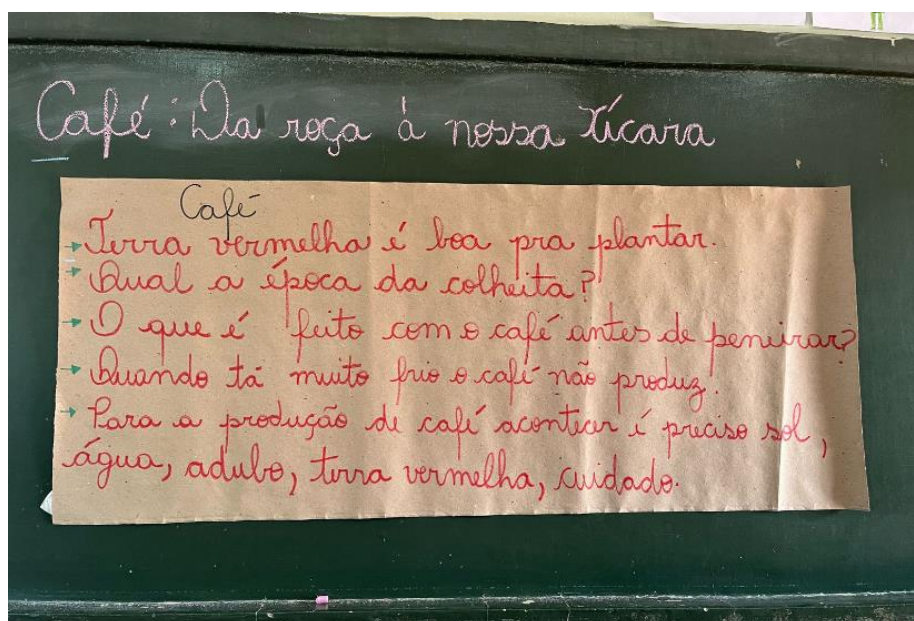 Café: Da roça à nossa xícara
Café
→ Terra vermelha é boa pra plantar.
→ Qual a época da colheita?
→ O que é feito com o café antes de peneirar?
→ Quando tá muito frio o café não produz.
→ Para a produção de café acontecer é preciso sol,
água, adubo, terra vermelha, cuidado.